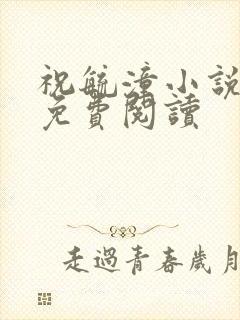 祝毓漳小說
免費閱讀
走過青春歲月